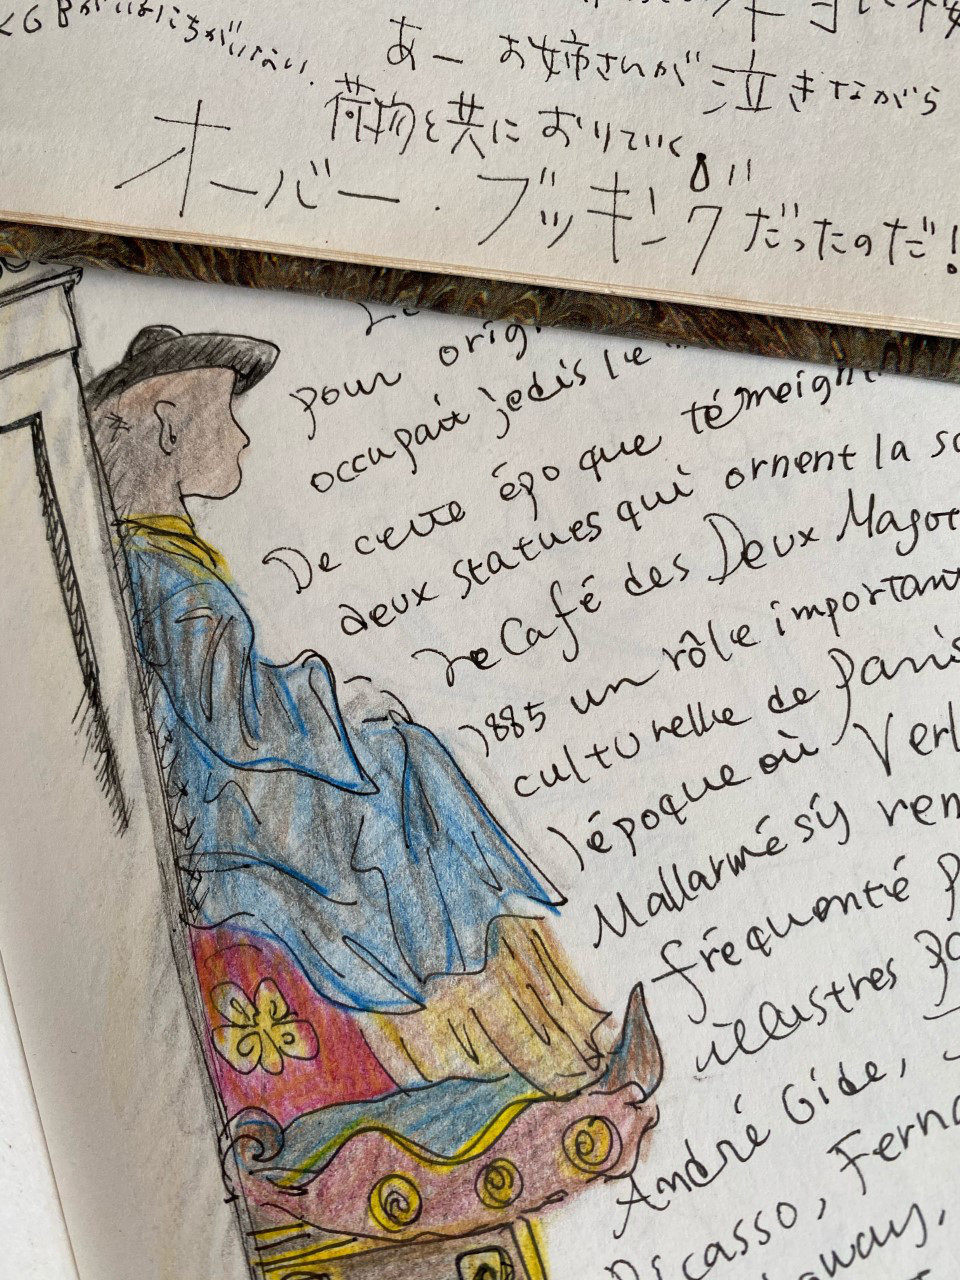 KGBがいたにちがいない。
あー お姉さんが泣きながら
荷物と共におりていく
オーバー・ブッキングだったのだ!
pour orig
occupait jedis le
De cette époque témeign
deux statues qui ornent la sa
Le Café des Deux Magot
1885 un rôle important
culturelle de Paris
l'époque où Verl
Mallarmé s'y ren
fréquenté p
illustres pa
André Gide,
Picasso, Ferna
away,